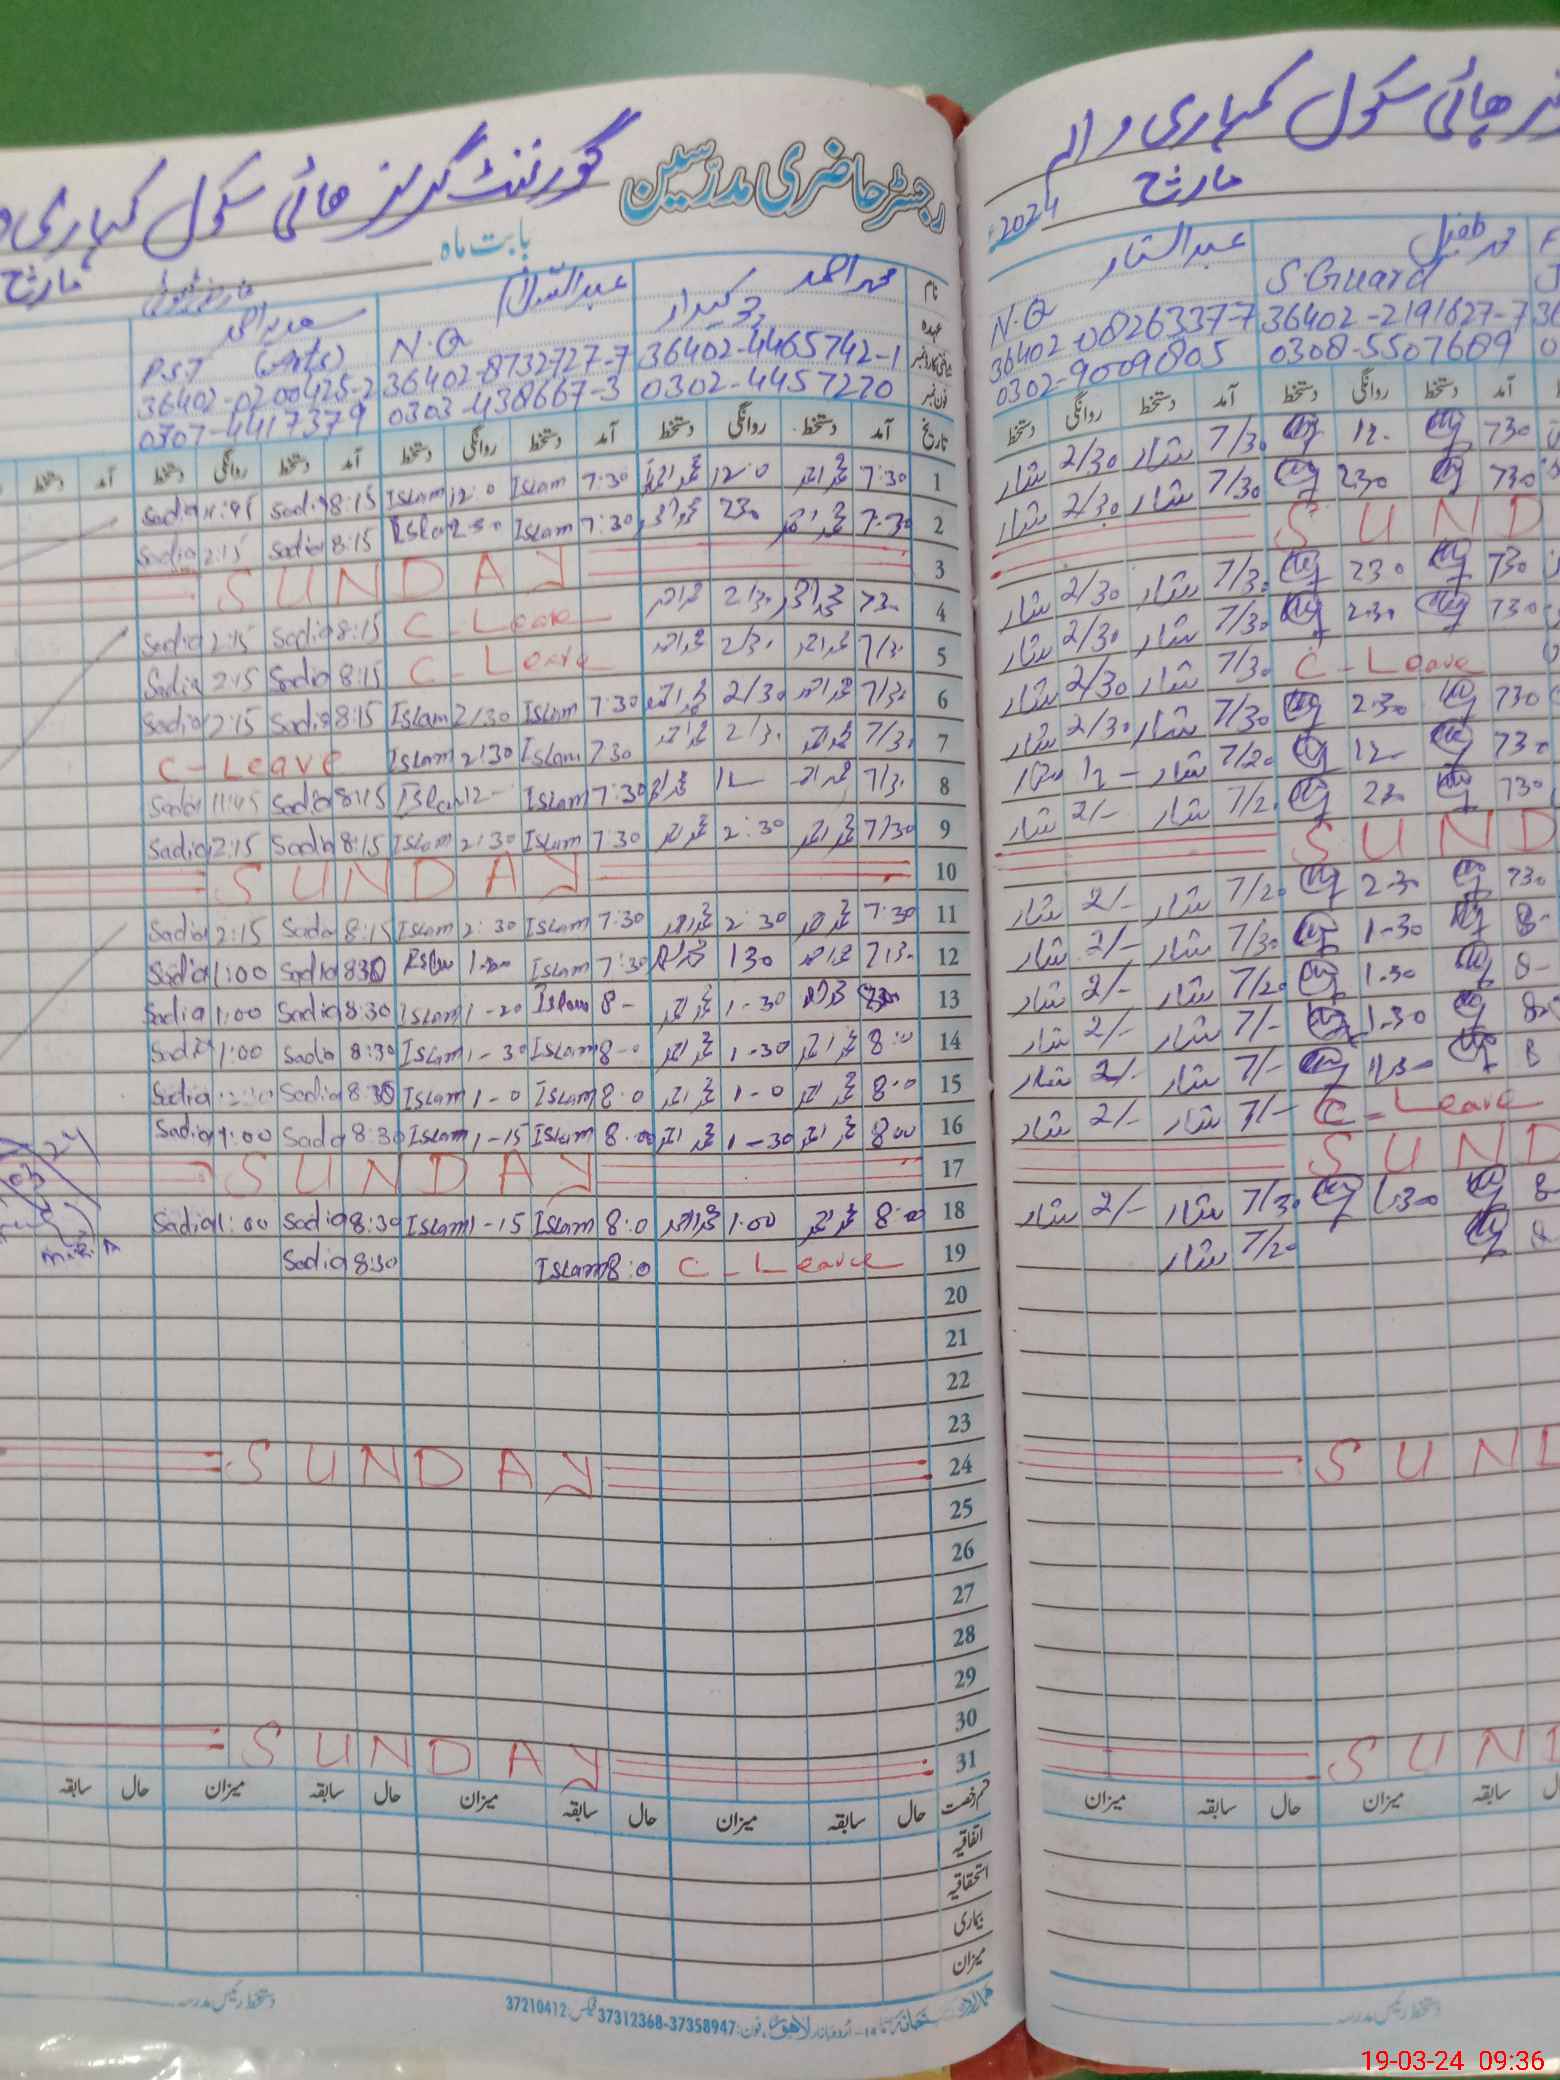 گورنمنٹ گرلز ہائی سکول کمہاری و
رجسٹر حاضری مدرسین
بابت ماہ
مارچ
نام
عہدہ
شناختی کارڈ نمبر
فون نمبر
محمد احمد
چوکیدار
36402-4465742-1
0302-4457220
N.Q
36402-8732727-7
0303-438667-3
سعدیہ احمد
P.S.T (Arts)
36402-0200425-2
0307-4417379
تاریخ آمد دستخط روانگی دستخط آمد دستخط روانگی دستخط آمد دستخط روانگی دستخط آمد دستخط
1 7:30 محمد احمد 12:0 محمد احمد 7:30 Islam 12:0 Islam 8:15 Sadia Sadia
2 7:30 محمد احمد 230 محمد احمد 7:30 Islam 8:15 Sadia 2:15 Sadia
3 SUNDAY
4 730 محمد احمد 2/30 محمد احمد C-Leave 8:15 Sadia 2:15 Sadia
5 7/30 محمد احمد 2/30 محمد احمد C-Leave 8:15 Sadia 2:15 Sadia
6 7/30 محمد احمد 2/30 محمد احمد 7:30 Islam 2/30 Islam 8:15 Sadia 2:15 Sadia
7 7/30 محمد احمد 2/30 محمد احمد 730 Islam 2:30 Islam C-Leave
8 7/30 محمد احمد 12- محمد احمد 7:30 Islam 12- Islam 8:15 Sadia 11:45 Sadia
9 7/30 محمد احمد 2:30 محمد احمد 7:30 Islam 2:30 Islam 8:15 Sadia 2:15 Sadia
10 SUNDAY
11 7:30 محمد احمد 2:30 محمد احمد 7:30 Islam 2:30 Islam 8:15 Sadia 2:15 Sadia
12 7:30 محمد احمد 130 محمد احمد 7:30 Islam Islam 830 Sadia 1:00 Sadia
13 محمد احمد 1-30 محمد احمد 8- Islam 1-20 Islam 8:30 Sadia 1:00 Sadia
14 8:0 محمد احمد 1-30 محمد احمد 8-0 Islam 1-30 Islam 8:30 Sadia 1:00 Sadia
15 8:0 محمد احمد 1-0 محمد احمد 8:0 Islam 1-0 Islam 8:30 Sadia Sadia
16 800 محمد احمد 1-30 محمد احمد 8:00 Islam 1-15 Islam 8:30 Sadia 1:00 Sadia
17 SUNDAY
18 8:00 محمد احمد 1.00 محمد احمد 8:0 Islam 1-15 Islam 8:30 Sadia 1:00 Sadia
19 C-Leave 8:0 Islam 8:30 Sadia
20
21
22
23
24 SUNDAY
25
26
27
28
29
30
31 SUNDAY
قسم رخصت حال سابقہ میزان حال سابقہ میزان حال سابقہ میزان حال سابقہ
اتفاقیہ
استحقاقیہ
بیماری
میزان
دستخط رئیس مدرسہ
اردو بازار لاہور، فون: 37312368-37358947 فیکس: 37210412
ہائی سکول کمہاری والہ
مارچ
2024
طفیل
S.Guard
36402-2191627-7
0308-5507689
عبدالستار
N.Q
36402-0826337-7
0302-9009805
آمد دستخط روانگی دستخط آمد دستخط روانگی دستخط
730 12- 7/30 ستار 2/30 ستار
730 230 7/30 ستار 2/30 ستار
SUND
730 230 7/30 ستار 2/30 ستار
730 2.30 7/30 ستار 2/30 ستار
C-Leave 7/30 ستار 2/30 ستار
730 2.30 7/30 ستار 2/30 ستار
730 12- 7/20 ستار 12- ستار
730 7/2 ستار 2/- ستار
SUND
730 2-30 7/20 ستار 2/- ستار
8- 1-30 7/30 ستار 2/- ستار
8- 1.30 7/20 ستار 2/- ستار
1-30 7/- ستار 2/- ستار
8 7/- ستار 2/- ستار
C-Leave 7/- ستار 2/- ستار
SUND
8- 1.30 7/30 ستار 2/- ستار
8 7/20 ستار
SUND
SUND
سابقہ میزان حال سابقہ میزان
دستخط رئیس مدرسہ
19-03-24 09:36